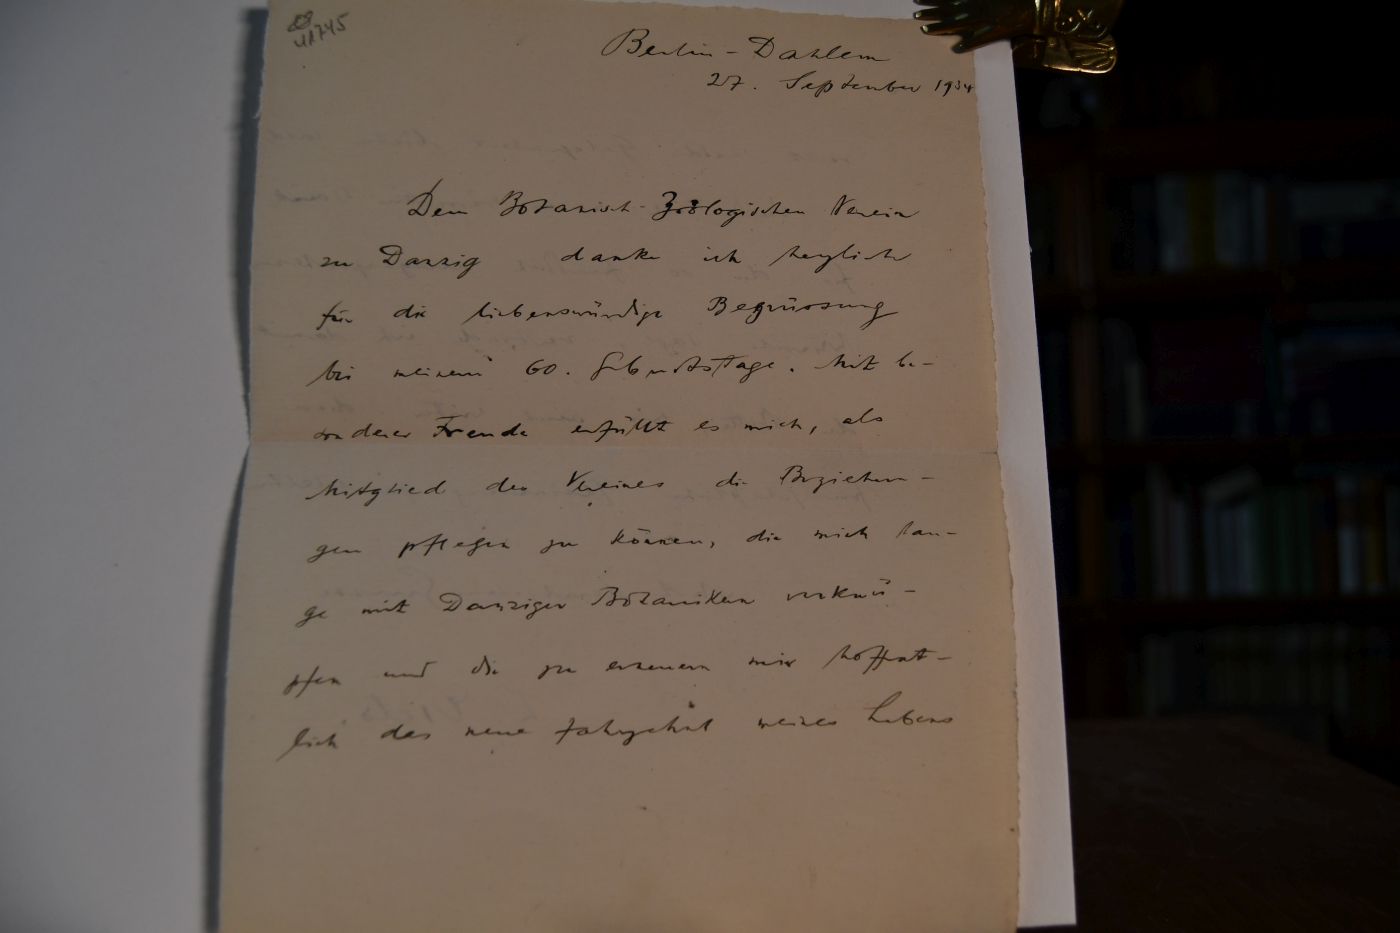 41745
Berlin-Dahlem
27. September 1934
Dem Botanisch-Zoologischen Verein
zu Danzig danke ich herzlich
für die liebenswürdige Begrüssung
bei meinem 60. Geburtstage. Mit be-
sonderer Freude erfüllt es mich, als
Mitglied des Vereines die Beziehun-
gen pflegen zu können, die mich lan-
ge mit Danziger Botanikern verknü-
pfen und die zu erneuern mir hoffent-
lich das neue Jahrzehnt meines Lebens